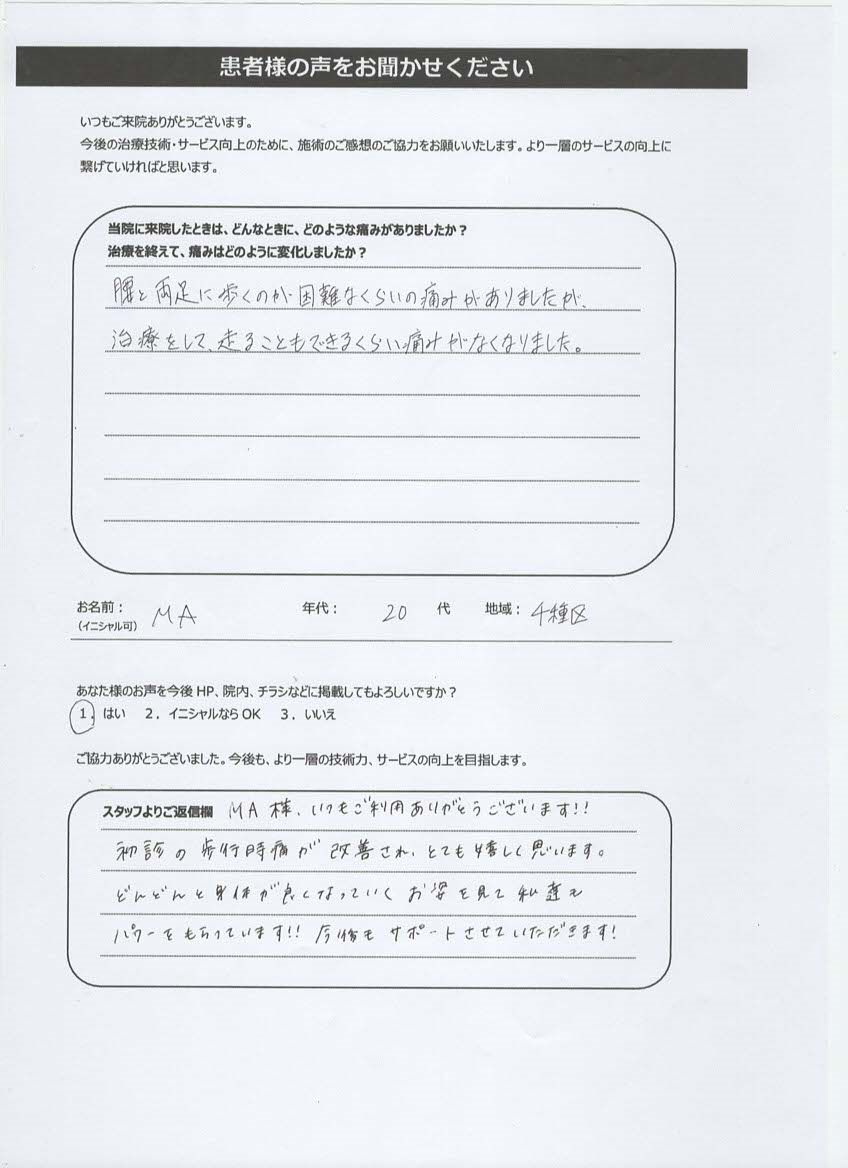 患者様の声をお聞かせください
いつもご来院ありがとうございます。
今後の治療技術・サービス向上のために、施術のご感想のご協力をお願いいたします。より一層のサービスの向上に
繋げていければと思います。
当院に来院したときは、どんなときに、どのような痛みがありましたか？
治療を終えて、痛みはどのように変化しましたか？
腰と両足に歩くのが困難なくらいの痛みがありましたが、
治療をして、走ることもできるくらい痛みがなくなりました。
お名前： MA 年代： 20 代 地域： 千種区
（イニシャル可）
あなた様のお声を今後 HP、院内、チラシなどに掲載してもよろしいですか？
1．はい 2．イニシャルなら OK 3．いいえ
ご協力ありがとうございました。今後も、より一層の技術力、サービスの向上を目指します。
スタッフよりご返信欄 MA様、いつもご利用ありがとうございます!!
初診の歩行時痛が改善され、とても嬉しく思います。
どんどんと身体が良くなっていくお姿を見て私達も
パワーをもらっています!! 今後もサポートさせていただきます!